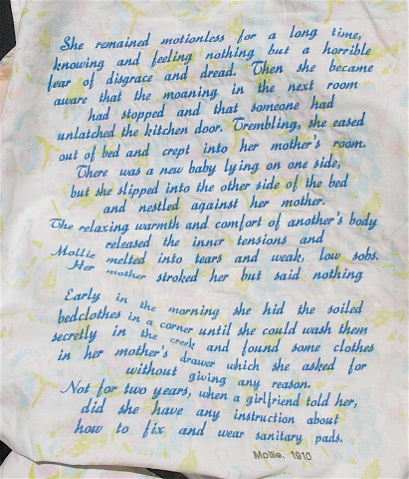 She remained motionless for a long time,
knowing and feeling nothing but a horrible
fear of disgrace and dread. Then she became
aware that the moaning in the next room
had stopped and that someone had
unlatched the kitchen door. Trembling, she eased
out of bed and crept into her mother's room.
There was a new baby lying on one side,
but she slipped into the other side of the bed
and nestled against her mother.
The relaxing warmth and comfort of another's body
released the inner tensions and
Mollie melted into tears and weak, low sobs.
Her mother stroked her but said nothing
Early in the morning she hid the soiled
bedclothes in a corner until she could wash them
secretly in the creek and found some clothes
in her mother's drawer which she asked for
without giving any reason.
Not for two years, when a girlfriend told her,
did she have any instruction about
how to fix and wear sanitary pads.
Mollie, 1910